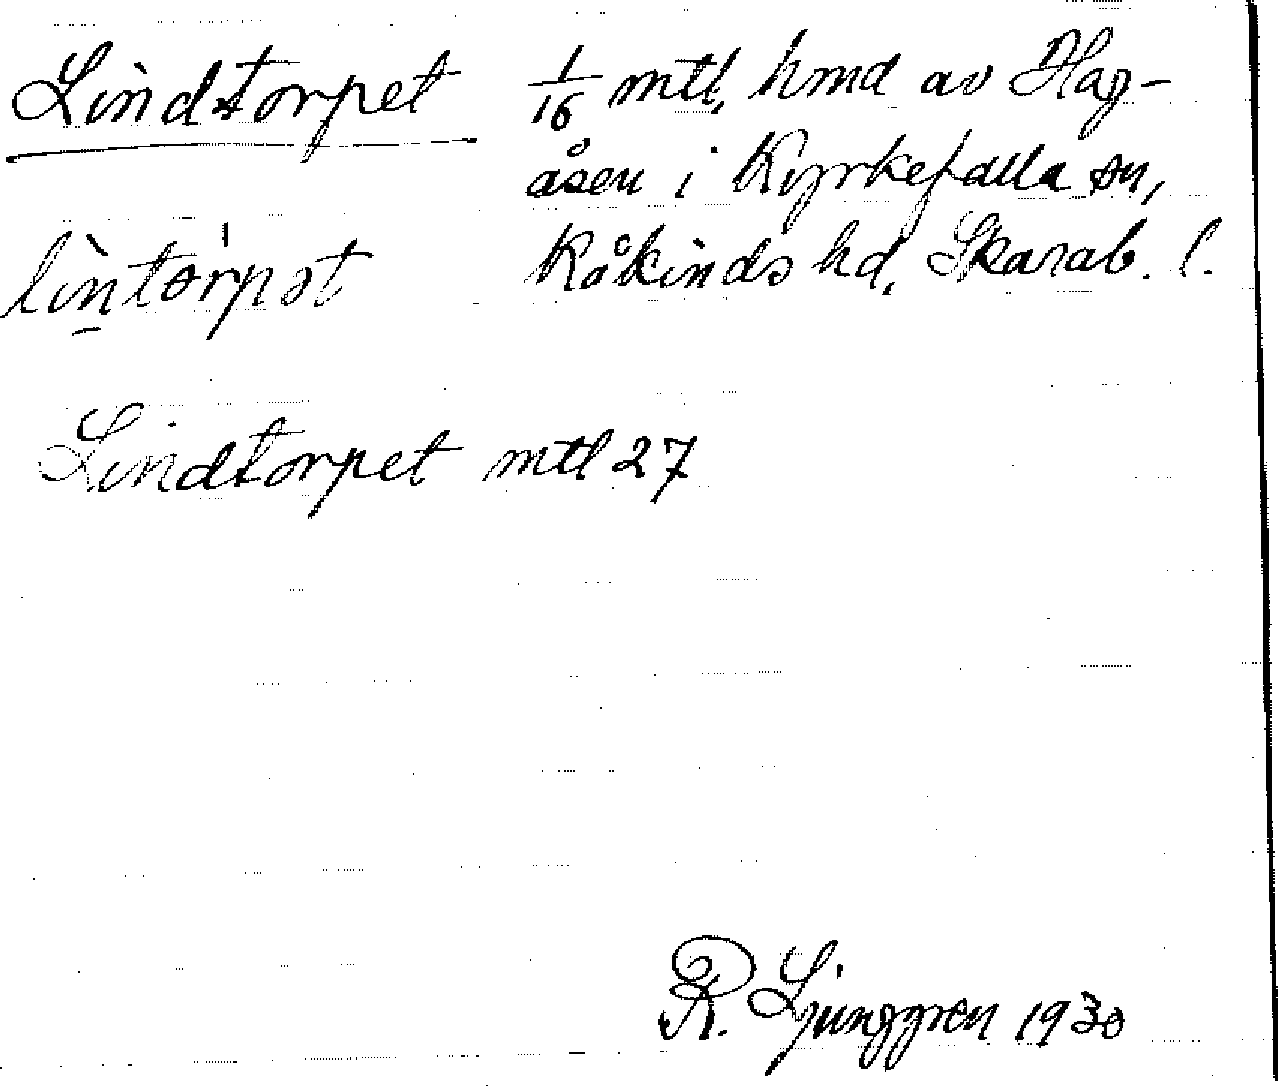 Lindtorpet 1/16 mtl, hmd av Hag-
åsen i Kyrkefalla sn,
lìntórpət Kåkinds hd, Skarab. l.
Lindtorpet mtl 27
R. Ljunggren 1930